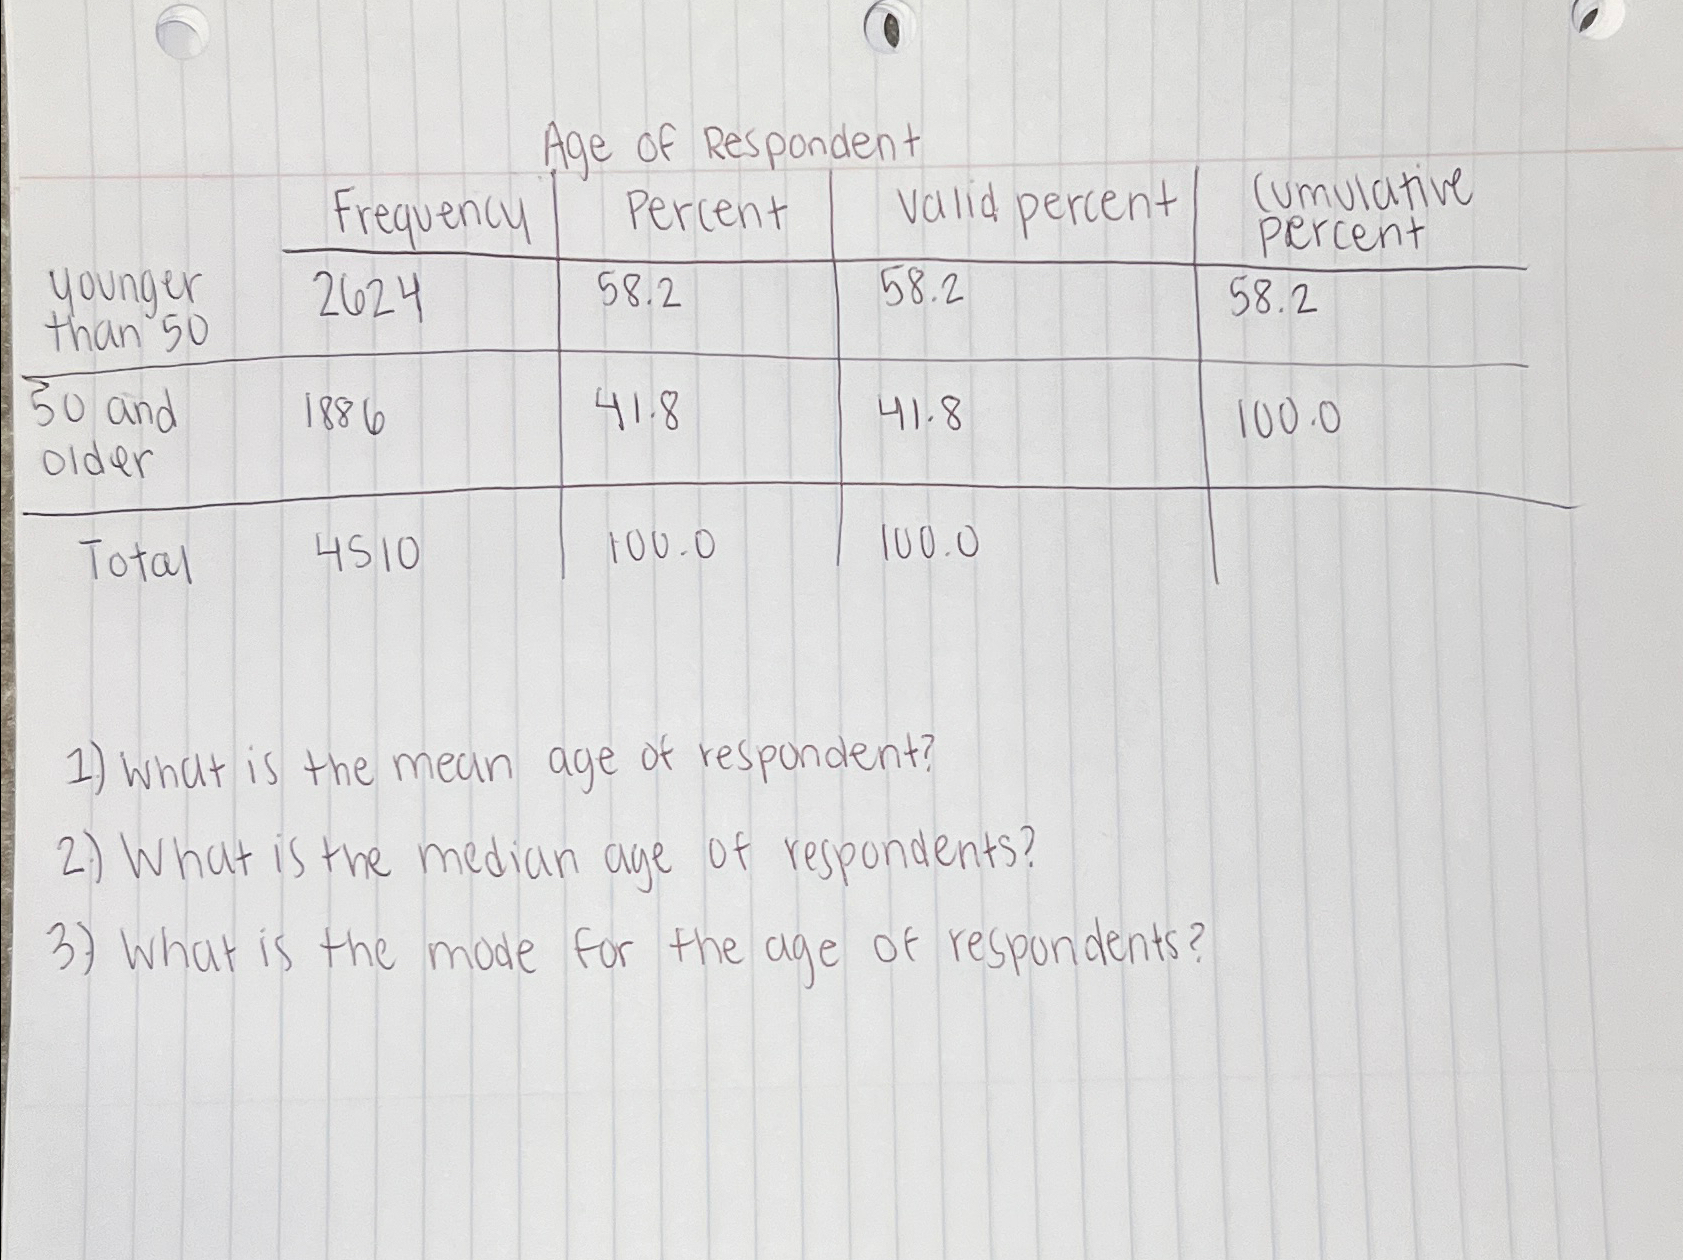 Age of Respondent
Frequency Percent Valid percent Cumulative percent
younger than 50 2624 58.2 58.2 58.2
50 and older 1886 41.8 41.8 100.0
Total 4510 100.0 100.0
1) What is the mean age of respondent?
2) What is the median age of respondents?
3) What is the mode for the age of respondents?